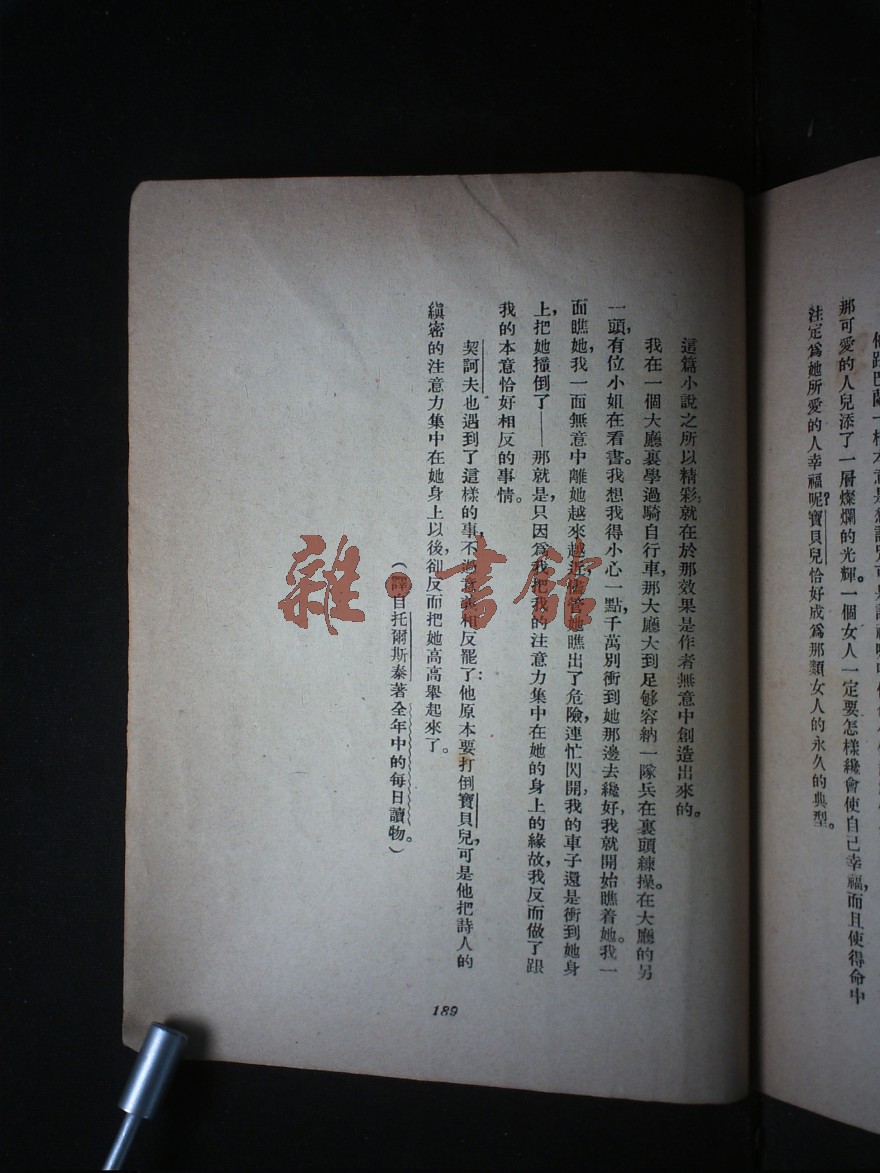 那可愛的人兒添了一層燦爛的光輝。一個女人一定要怎樣纔會使自己幸福，而且使得命中
注定爲她所愛的人幸福呢？寶貝兒恰好成爲那類女人的永久的典型。
這篇小說之所以精彩，就在於那效果是作者無意中創造出來的。
我在一個大廳裏學過騎自行車，那大廳大到足够容納一隊兵在裏頭練操。在大廳的另
一頭，有位小姐在看書。我想我得小心一點，千萬別衝到她那邊去纔好，我就開始瞧着她。我一
面瞧她，我一面無意中離她越來越近，儘管她瞧出了危險，連忙閃開，我的車子還是衝到她身
上，把她撞倒了——那就是，只因爲我把我的注意力集中在她的身上的緣故，我反而做了跟
我的本意恰好相反的事情。
契訶夫也遇到了這樣的事，不過意義相反罷了：他原本要打倒寶貝兒，可是他把詩人的
縝密的注意力集中在她身上以後，卻反而把她高高舉起來了。
（譯自托爾斯泰著全年中的每日讀物。）
189
雜·書館